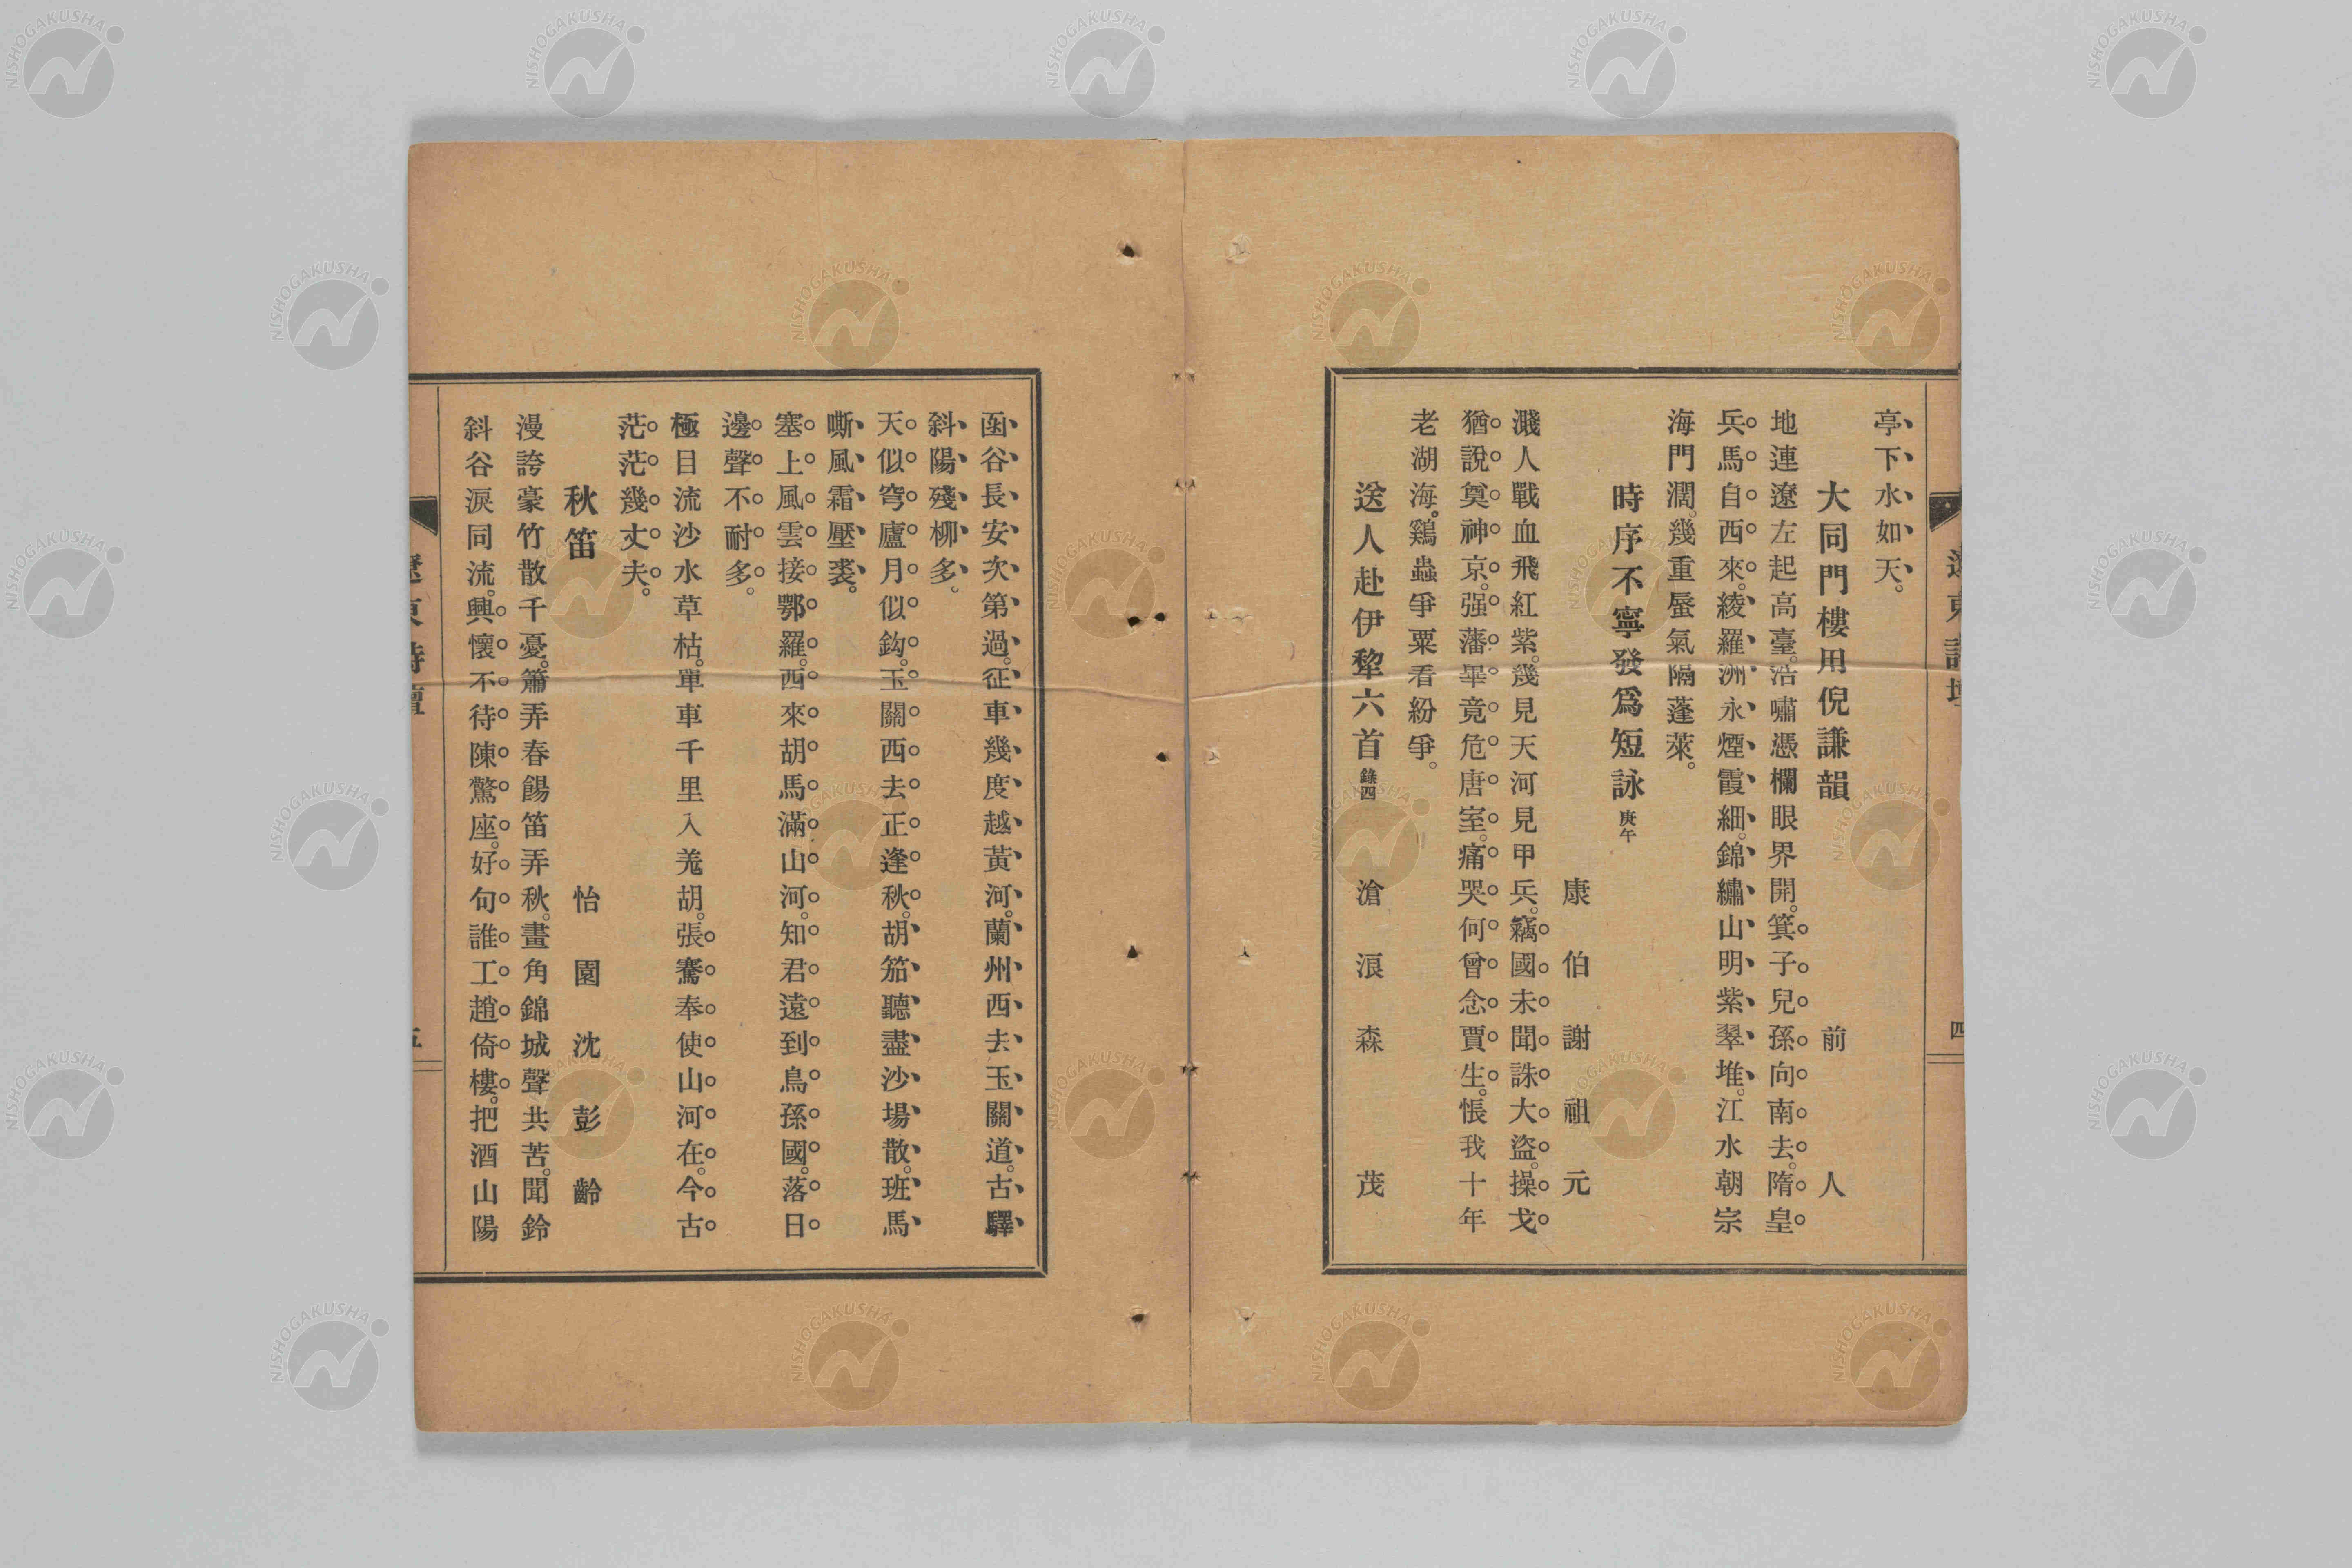 亭下水如天。
大同門樓用倪謙韻　前人
地連遼左起高臺。浩嘯憑欄眼界開。箕子兒孫向南去。隋皇
兵馬自西來。綾羅洲永煙霞細。錦繡山明紫翠堆。江水朝宗
海門濶。幾重蜃氣隔蓬萊。
時序不寧發爲短詠 庚午
康伯謝祖元
濺人戰血飛紅紫。幾見天河見甲兵。竊國未聞誅大盜。操戈
猶說奠神京。强藩畢竟危唐室。痛哭何曾念賈生。悵我十年
老湖海。鷄蟲爭粟看紛爭。
送人赴伊犂六首 錄四　滄浪森茂
遼東詩壇　四
函谷長安次第過。征車幾度越黃河。蘭州西去玉關道。古驛
斜陽殘柳多。
天似穹廬月似鈎。玉關西去正逢秋。胡笳聽盡沙場散。班馬
嘶風霜壓裘。
塞上風雲接鄂羅。西來胡馬滿山河。知君遠到烏孫國。落日
邊聲不耐多。
極目流沙水草枯。單車千里入羗胡。張騫奉使山河在。今古
茫茫幾丈夫。
秋笛　怡園沈彭齡
漫誇豪竹散千憂。簫弄春餳笛弄秋。畫角錦城聲共苦。聞鈴
斜谷淚同流。興懷不待陳驚座。好句誰工趙倚樓。把酒山陽
遼東詩壇　五
NISHOGAKUSHA